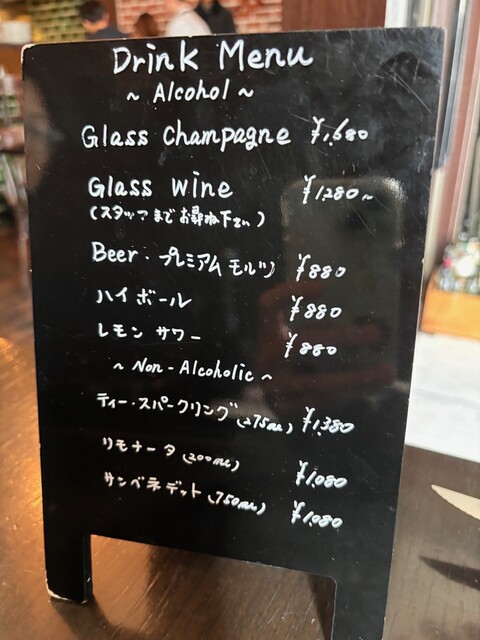 Drink Menu
~ Alcohol ~
Glass Champagne ¥1,680
Glass Wine ¥1,280~
(スタッフまでお尋ね下さい)
Beer・プレミアムモルツ ¥880
ハイボール ¥880
レモンサワー ¥880
~ Non-Alcoholic ~
ティー・スパークリング(275ml) ¥1,380
リモナータ(200ml) ¥1,080
サンベネデット(750ml) ¥1,080